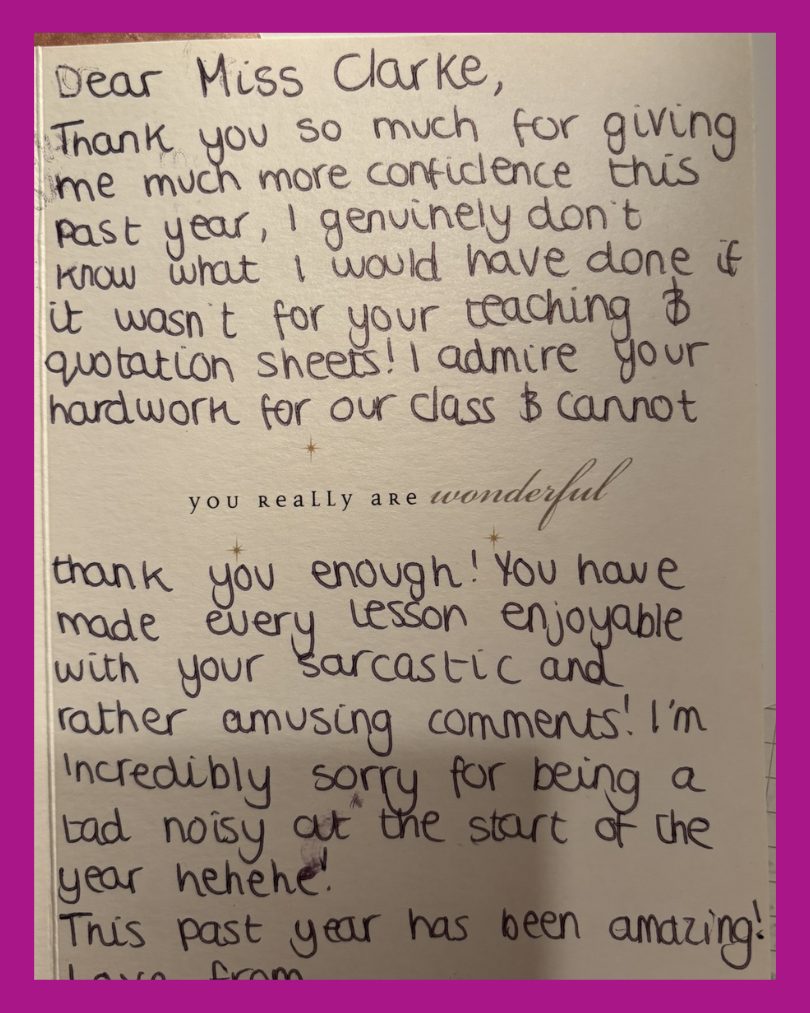 Dear Miss Clarke,
Thank you so much for giving
me much more confidence this
past year, I genuinely don't
know what I would have done if
it wasn't for your teaching &
quotation sheets! I admire your
hardwork for our class & cannot
you really are wonderful
thank you enough! You have
made every lesson enjoyable
with your sarcastic and
rather amusing comments! I'm
Incredibly sorry for being a
tad noisy at the start of the
year hehehe!
This past year has been amazing!
Love from